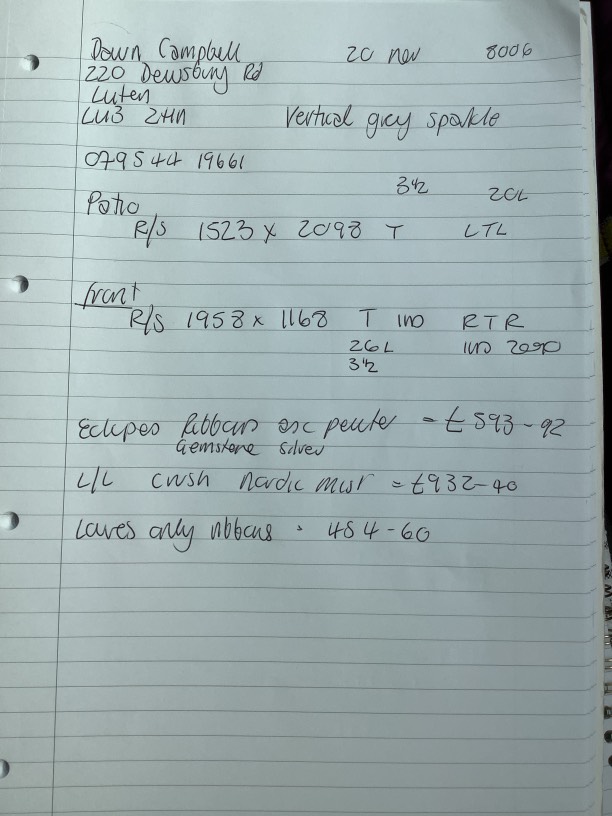 Dawn Campbell 20 nov 8006
220 Dewsbury Rd
Luton
LU3 2HN Vertical grey sparkle
079544 19661
3½ 20L
Patio
R/S 1523 x 2098 T LTL
front
R/S 1958 x 1168 T IND RTR
26L IND
3½
Eclipes Ribbons esc pewter = £593-92
Gemstone silver
L/L crush nordic mist = £932-40
Louves only ribbons - 484-60